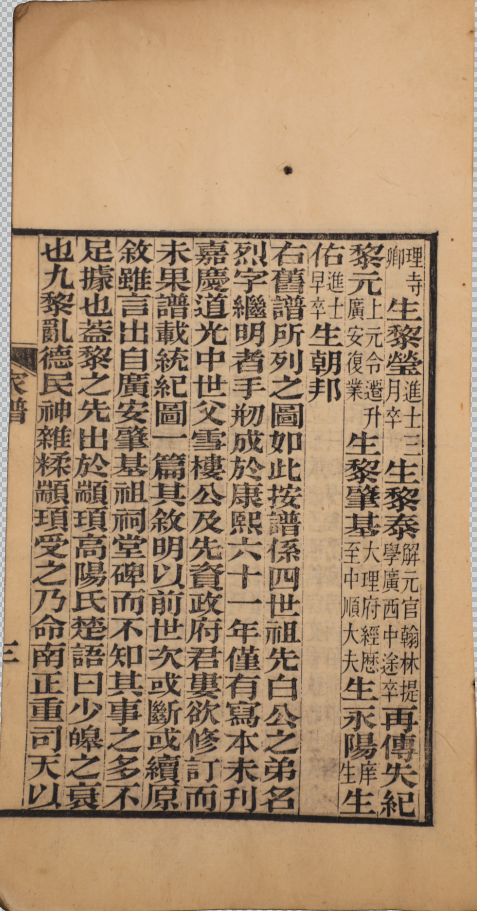 理寺卿生黎瑩進士三月卒生黎泰解元官翰林提學廣西中途卒再傳失紀
黎元上元令遷升廣安復業生黎肇基大理府經歷至中順大夫生永陽庠生生
佑進士早卒生朝邦
右舊譜所列之圖如此按譜係四世祖先白公之弟名
烈字繼明者手刱成於康熙六十一年僅有寫本未刊
嘉慶道光中世父雪樓公及先資政府君婁欲修訂而
未果譜載統紀圖一篇其敘明以前世次或斷或續原
敘雖言出自廣安肇基祖祠堂碑而不知其事之多不
足據也葢黎之先出於顓頊高陽氏楚語曰少皞之衰
也九黎亂德民神雜糅顓頊受之乃命南正重司天以
家譜
三